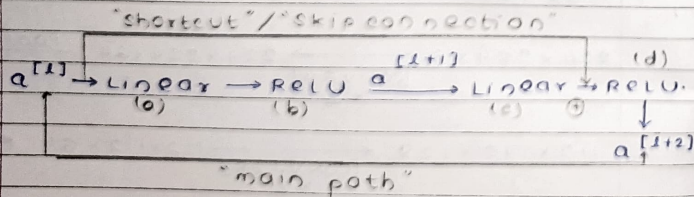 "shortcut"/"skip connection"
a^[l] → Linear → ReLU a^[l+1] → Linear → ReLU. (d)
(a) (b) (c) ⊕
a^[l+2]
"main path"